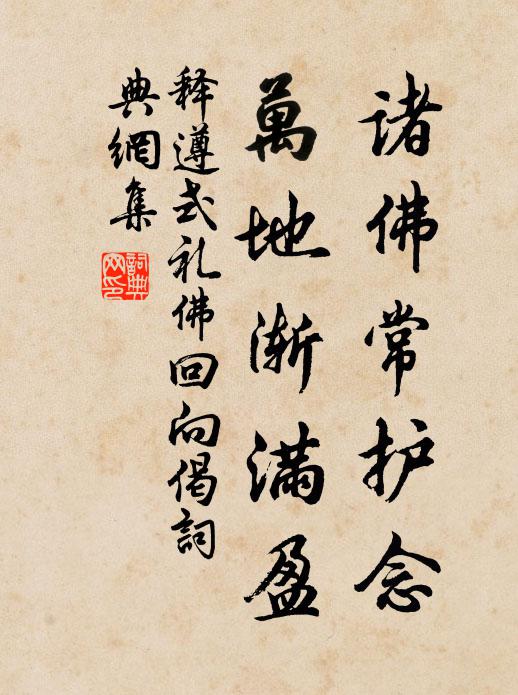 诸佛常护念
萬地渐满盈
释遵式礼佛回向偈詞
典網集
詞典
网印